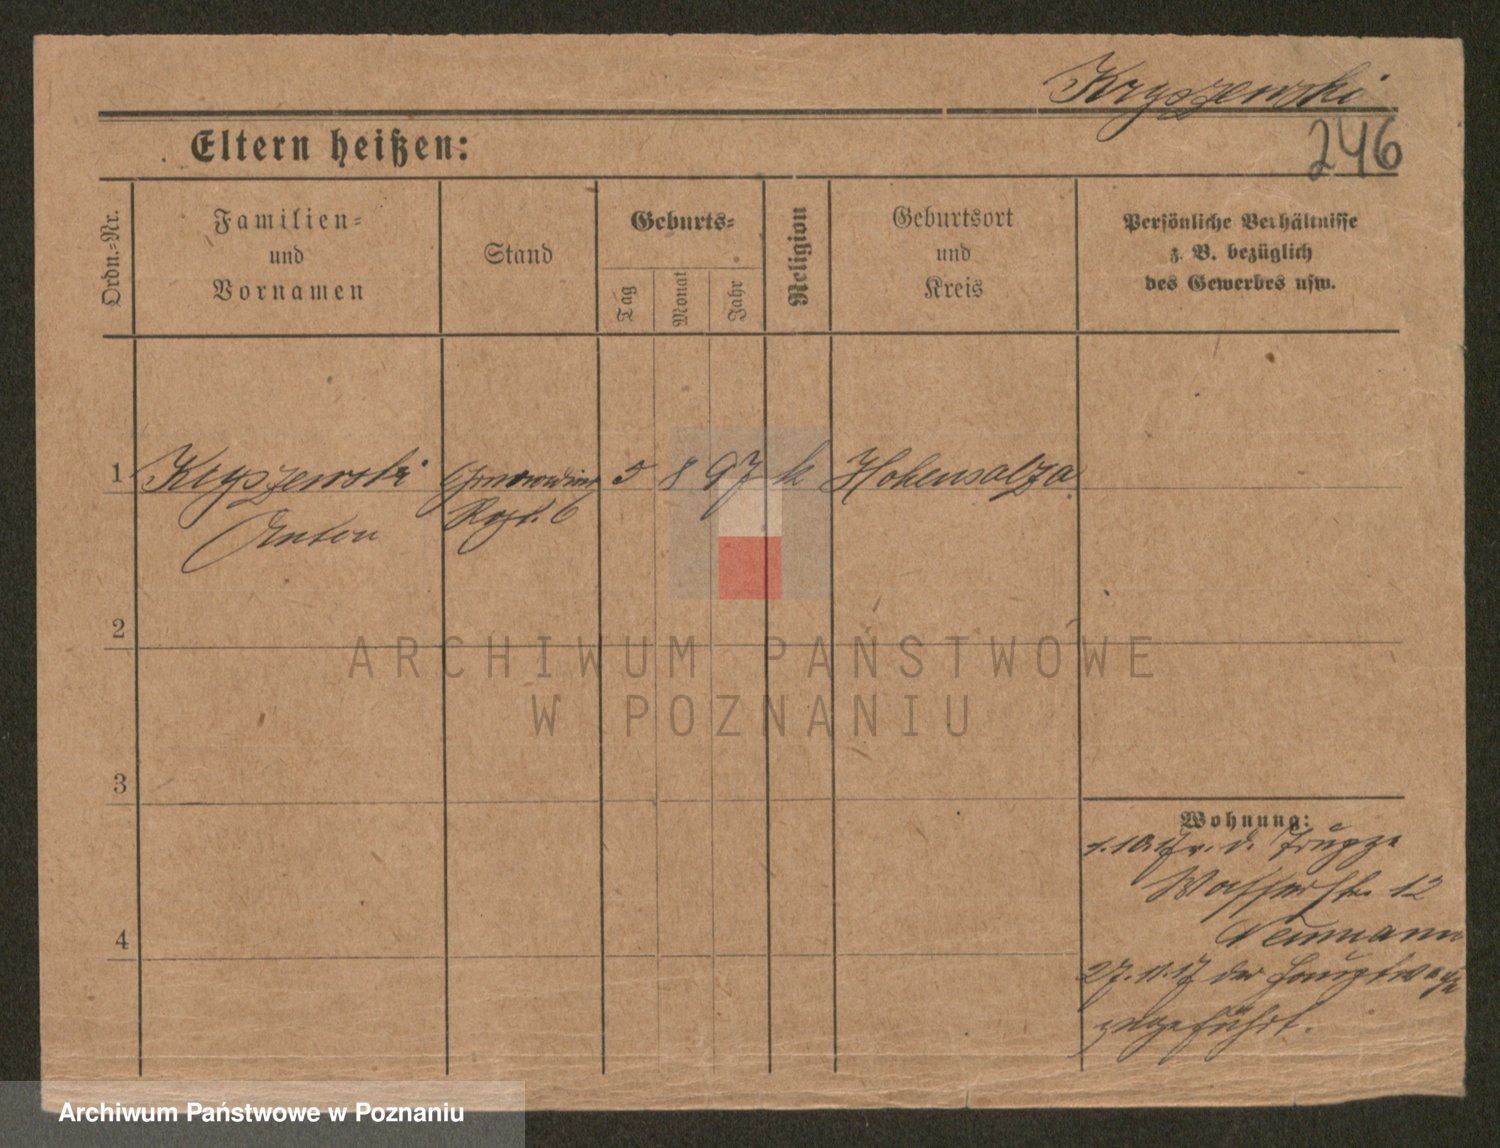 Kryszewski
246
Eltern heißen:
Ordn.-Nr.
Familien-
und
Vornamen
Stand
Geburts-
Tag
Monat
Jahr
Religion
Geburtsort
und
Kreis
Persönliche Verhältnisse
z. B. bezüglich
des Gewerbes usw.
1 Kryszewski 5 8 97 k Hohensalza
Anton Regt. 6
2
3
4
Wohnung:
1.10.17 v. d. Truppe
Wasserstr. 12
Neumann
27.11.17 der Hauptwache
zugeführt.
ARCHIWUM PAŃSTWOWE
W POZNANIU
Archiwum Państwowe w Poznaniu